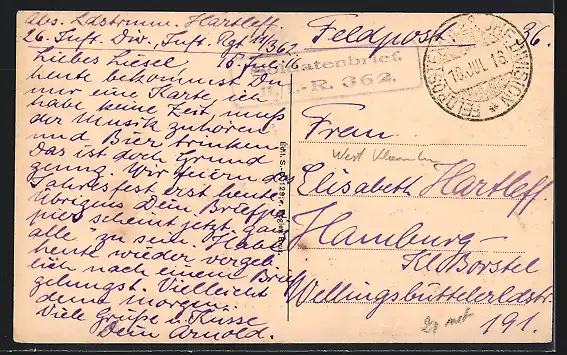 Abs. Ldstrum. Hartleff
26. Inft. Div., Inft. Rgt. 11/362
Liebes Liesel, 15 Juli 16
heute bekommst Du
nur eine Karte, ich
habe keine Zeit, muß
der Musik zuhören
und Bier trinken.
Das ist doch Grund
genug. Wir feiern das
Jahresfest erst heute
Übrigens Dein Briefpa-
pier scheint jetzt "ganz
alle" zu sein. Habe
heute wieder vergeb-
lich nach einem Brief
gelungst. Vielleicht
denn morgen.
Viele Grüße u. Küsse
Dein Arnold.
Feldpost 36.
Soldatenbrief.
R. 362.
DIVISION
16 JUL 16
Frau
West Vlaandern
Elisabeth Hartleff
Hamburg
Kl. Borstel
Wellingsbüttelerldstr.
191.